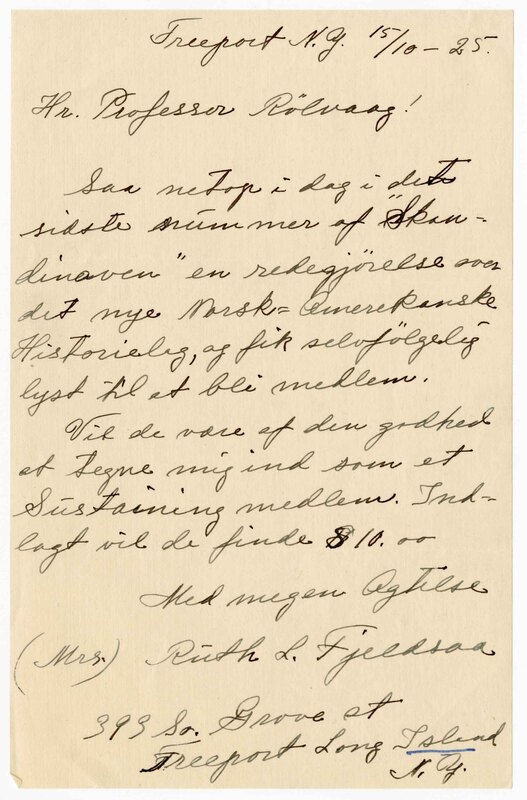 Freeport N.Y. 15/10-25.
Hr. Professor Rölvaag!
Saa netop i dag i det
sidste nummer af "Skan-
dinaven" en redegjörelse over
det nye Norsk=Amerekanske
Historielag, og fik selvfölgelig
lyst til at bli medlem.
Vil de være af den godhed
at tegne mig ind som et
Sustaining medlem. Ind=
lagt vil de finde $10.00
Med megen Agtelse
(Mrs.) Ruth L. Fjeldsaa
393 So. Grove st
Freeport Long Island
N.Y.